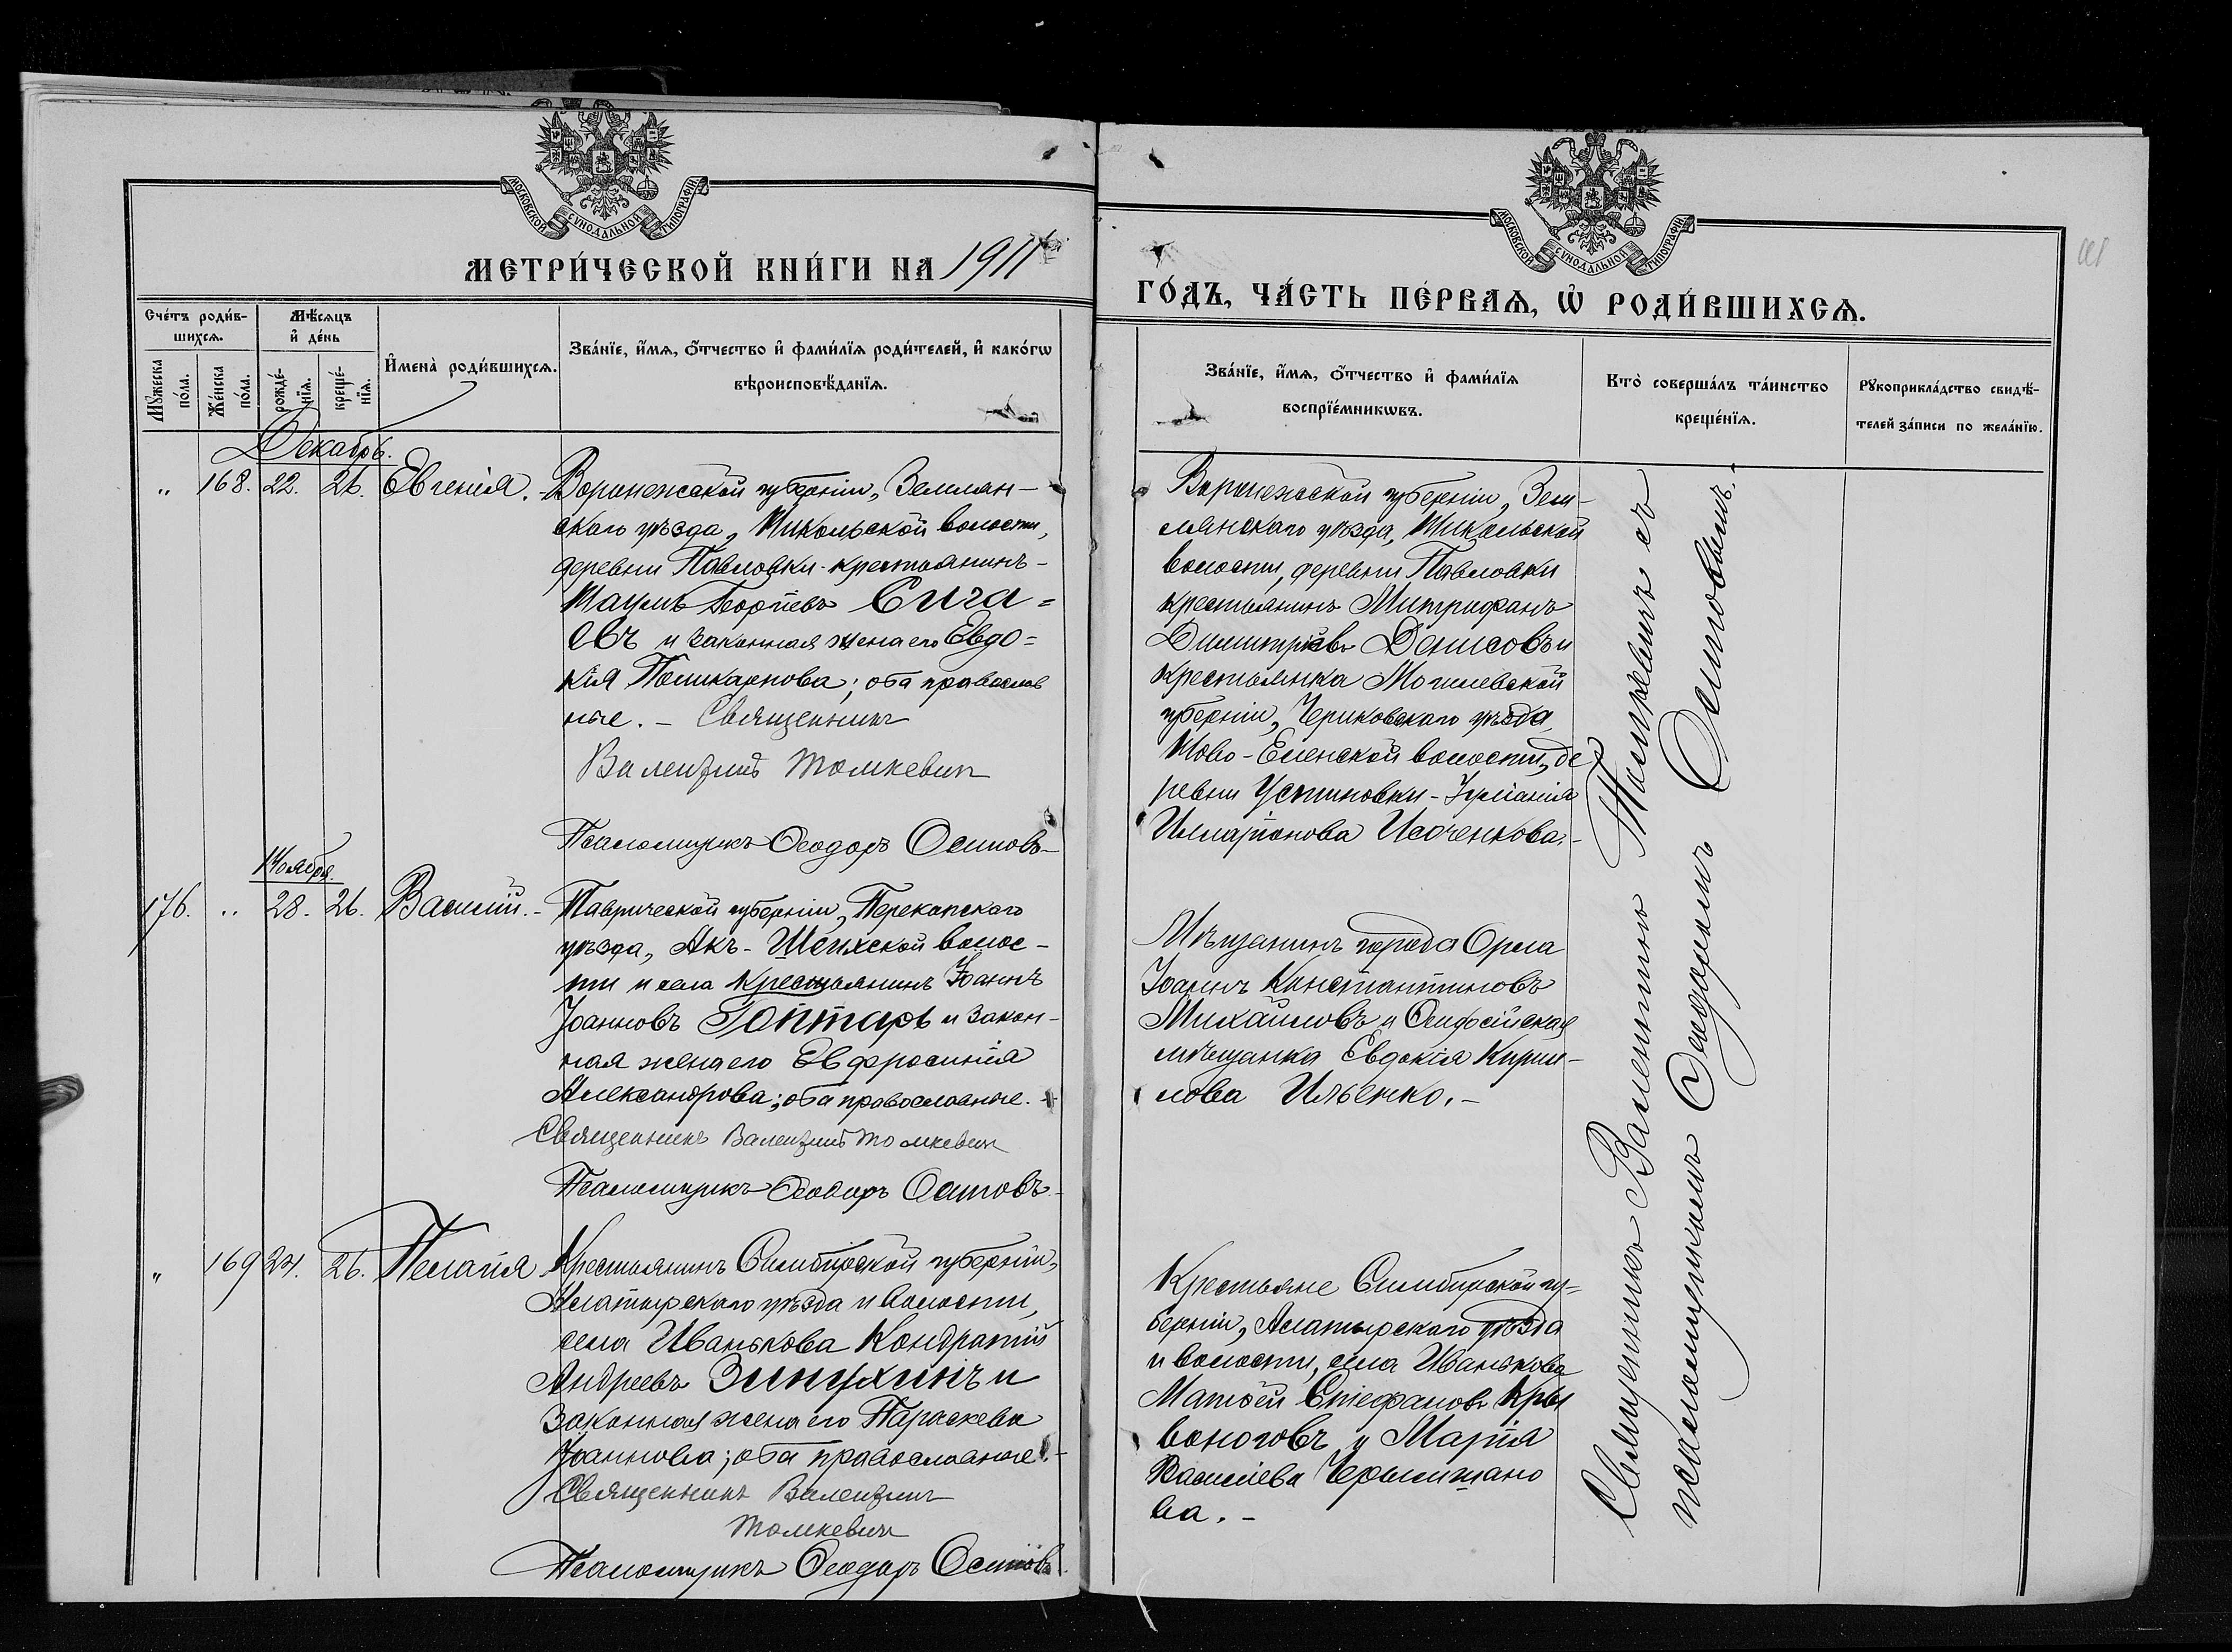 МОСКОВСКОЙ СѴНОДАЛЬНОЙ ТИПОГРАФІИ.
МЕТРИ́ЧЕСКОЙ КНИ́ГИ НА 1911
Сче́тъ роди́в-
шихсѧ.
Мꙋжеска
по́ла.
Же́нска
по́ла.
Мѣ́сѧцъ
и҆ де́нь
рожде́-
нїѧ.
креще́-
нїѧ.
И҆мена̀ роди́вшихсѧ.
Зва́нїе, и҆́мѧ, ѻ҆́тчество и҆ фами́лїѧ роди́телей, и҆ како́гѡ
вѣроисповѣ́данїѧ.
Декабрь.
„ 168. 22. 26. Евгенія.
Воронежской губерніи, Землян-
скаго уѣзда, Никольской волости,
деревни Павловки крестьянинъ
Наумъ Георгіевъ Сига=
евъ и законная жена его Евдо=
кія Поликарпова; оба православ
ные. - Священникъ
Валентинъ Томкевич
Псаломщикъ Ѳеодоръ Осиповъ
Ноября.
176. „ 28. 26. Василій. -
Таврической губерніи, Перекопскаго
уѣзда, Акъ-Шеихской волос-
ти и села крестьянинъ Іоаннъ
Іоанновъ Гоптарь и закон-
ная жена его Евфросинія
Александрова; оба православные. -
Священникъ Валентинъ Томкевич
Псаломщикъ Ѳеодоръ Осиповъ.
„ 169 24. 26. Пелагія
Крестьянинъ Симбирской губерніи,
Алатырскаго уѣзда и волости,
села Иванькова Кондратій
Андреевъ Зинухинъ и
законная жена его Параскева
Іоаннова; оба православные. -
Священникъ Валентин
Томкевич
Псаломщикъ Ѳеодоръ Осиповъ.
МОСКОВСКОЙ СѴНОДАЛЬНОЙ ТИПОГРАФІИ.
ГО́ДЪ, ЧА́СТЬ ПЕ́РВАѦ, Ѡ҆ РОДИ́ВШИХСѦ.
Зва́нїе, и҆́мѧ, ѻ҆́тчество и҆ фами́лїѧ
воспрїе́мникѡвъ.
Кто̀ соверша́лъ та́инство
креще́нїѧ.
Рꙋкоприкла́дство свидѣ́-
телей за́писи по жела́нїю.
Воронежской губерніи, Зем-
лянскаго уѣзда, Никольской
волости, деревни Павловки
крестьянинъ Митрофанъ
Димитріевъ Денисовъ и
крестьянка Могилевской
губерніи, Чериковскаго уѣзда
Ново-Еленской волости, де
ревни Устиновки - Іуліанія
Илларіонова Исаченкова. -
Мѣщанинъ города Орла
Іоаннъ Константиновъ
Михайловъ и Ѳеодосійская
мѣщанка Евдокія Кирил-
лова Ильенко. -
Крестьяне Симбирской гу=
берніи, Алатырскаго уѣзда
и волости, села Иванькова
Матѳей Стефановъ Кры
воноговъ и Марія
Василіева
ва. -
Священникъ Валентинъ Томкевичъ съ
псаломщикомъ Ѳеодоромъ Осиповымъ. -